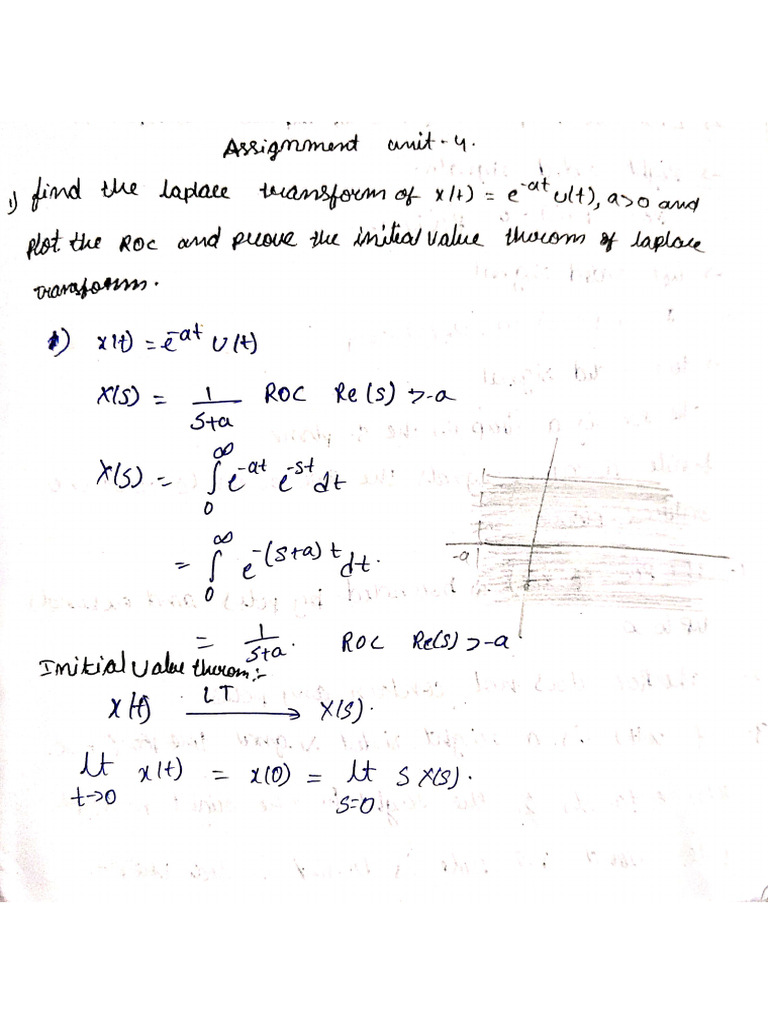 Assignment unit-4.
1) find the laplace transform of x(t) = e^-at u(t), a>0 and
plot the ROC and prove the initial value thorom of laplace
transform.
1) x(t) = e^-at u(t)
X(s) = 1/(s+a) ROC Re(s) > -a
X(s) = ∫_0^∞ e^-at e^-st dt
= ∫_0^∞ e^-(s+a)t dt.
-a
= 1/(s+a). ROC Re(s) > -a
Initial value thorom:-
x(t) LT → X(s).
lt t→0 x(t) = x(0) = lt s=0 s X(s).